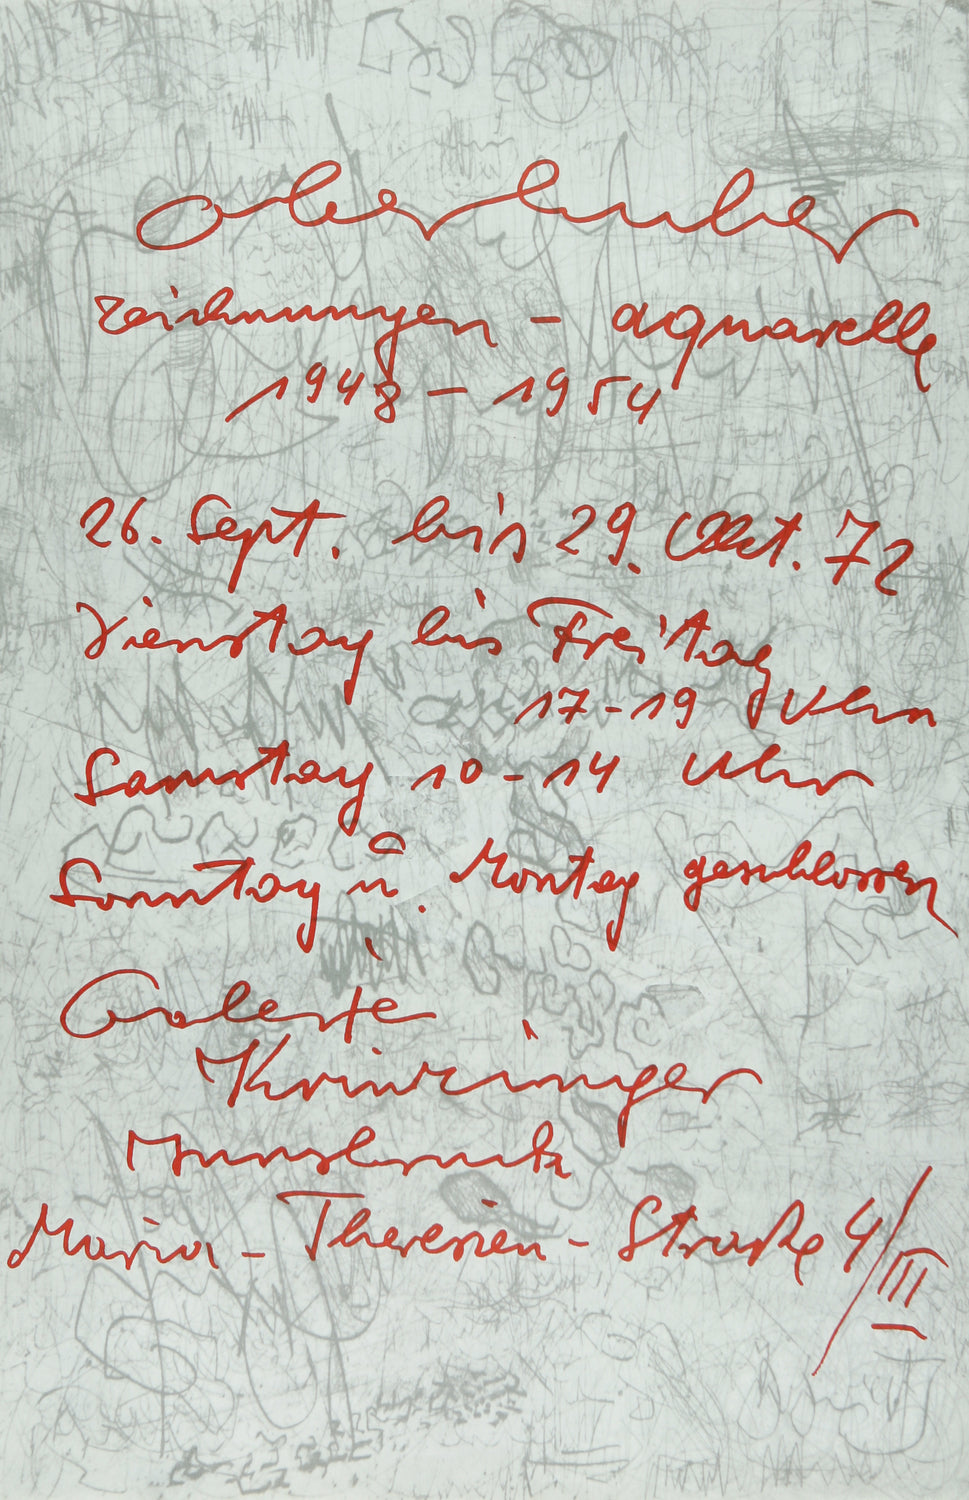 oberhuber
zeichnungen - aquarelle
1948 - 1954
26. Sept. bis 29. Okt. 72
Dienstag bis Freitag
17-19 Uhr
Samstag 10-14 Uhr
Sonntag u. Montag geschlossen
Galerie
Krinzinger
Innsbruck
Maria-Theresien-Straße 4/III